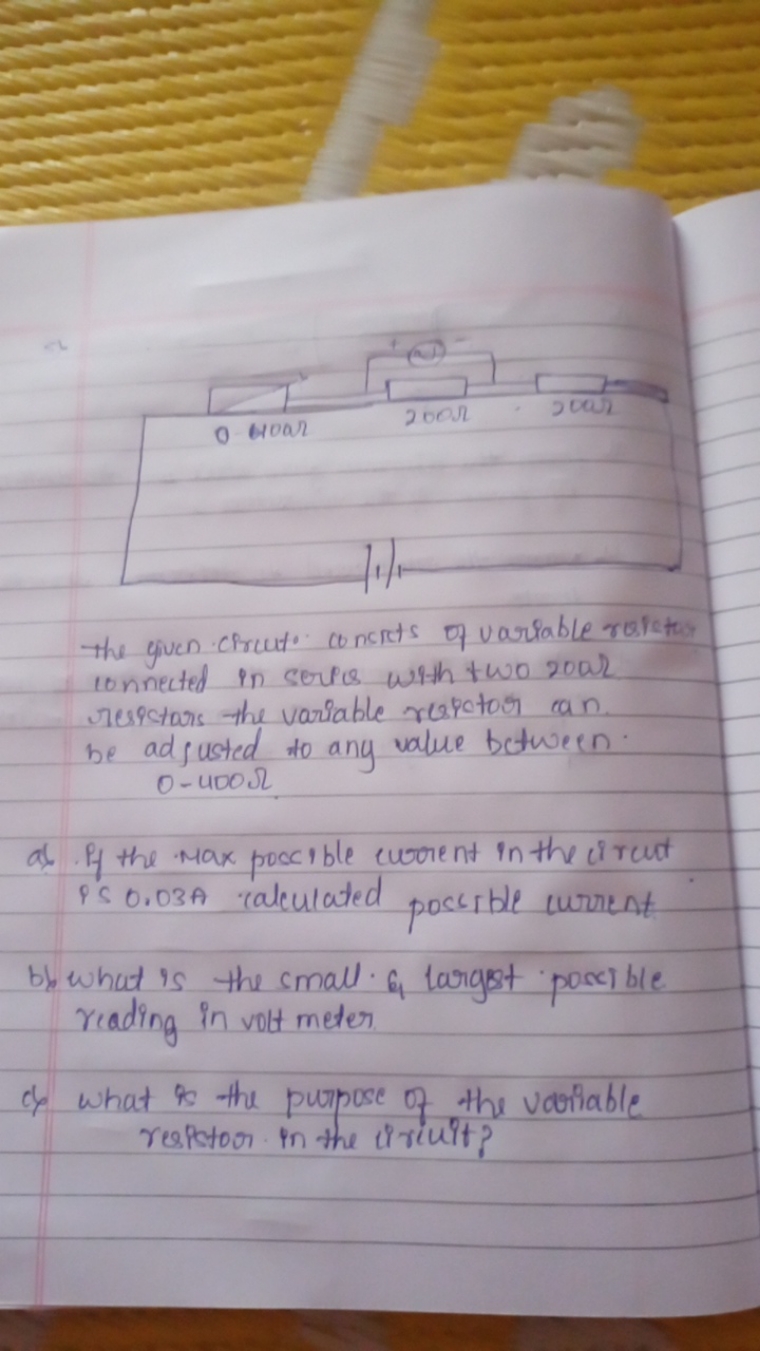 + -
200Ω
200Ω
the given circuit consists of variable resistor
connected in series with two 200Ω
resistors the variable resistor can
be adjusted to any value between
0-400Ω
a) If the Max possible current in the circuit
is 0.03A calculated possible current
b) what is the small & largest possible
reading in volt meter
c) what is the purpose of the variable
resistor in the circuit?